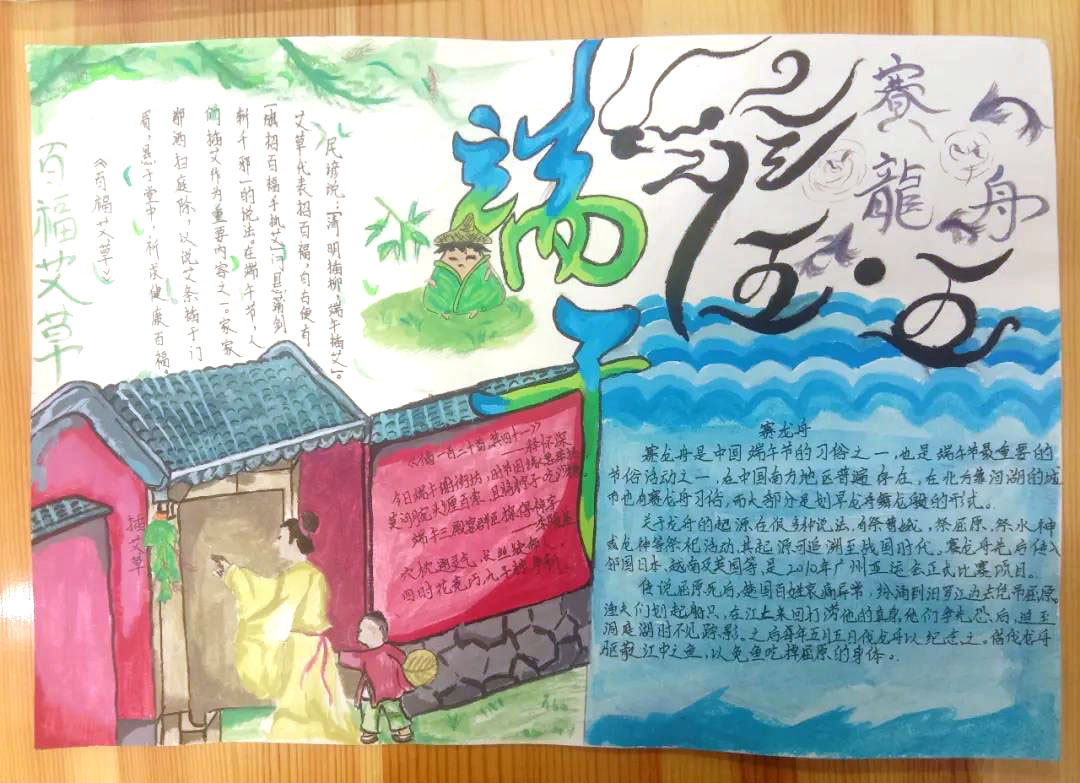 百福艾草
民谚说：“清明插柳，端午插艾”。
艾草代表招百福，自古便有
“旗招百福手执艾，门悬蒲剑
斩千邪”的说法。在端午节，人
们插艾作为重要内容之一。家家
都洒扫庭除，以说艾条插于门
眉，悬于堂中，祈求健康百福。
《百福艾草》
端午
赛龍舟
插艾草
《偈一百二十首 其四十一》
释怀深
今日端午谢街坊，时节因缘
端午三殿
四时花竞巧，九子粽争新。
赛龙舟
赛龙舟是中国端午节的习俗之一，也是端午节最重要的
节俗活动之一，在中国南方地区普遍存在，在北方靠河湖的城
市也有赛龙舟习俗，而大部分是划旱龙舟舞龙船的形式。
关于龙舟的起源有很多种说法，有祭曹娥，祭屈原，祭水神
或龙神等祭祀活动，其起源可追溯至战国时代。赛龙舟先后传入
邻国日本，越南及英国等，是2010年广州亚运会正式比赛项目。
传说屈原死后，楚国百姓哀痛异常，纷涌到汨罗江边去凭吊屈原。
渔夫们划起船只，在江上来回打捞他的真身，他们争先恐后，追至
洞庭湖时不见踪影，之后每年五月五日伐龙舟以纪念之。借伐龙舟
驱散江中之鱼，以免鱼吃掉屈原的身体。